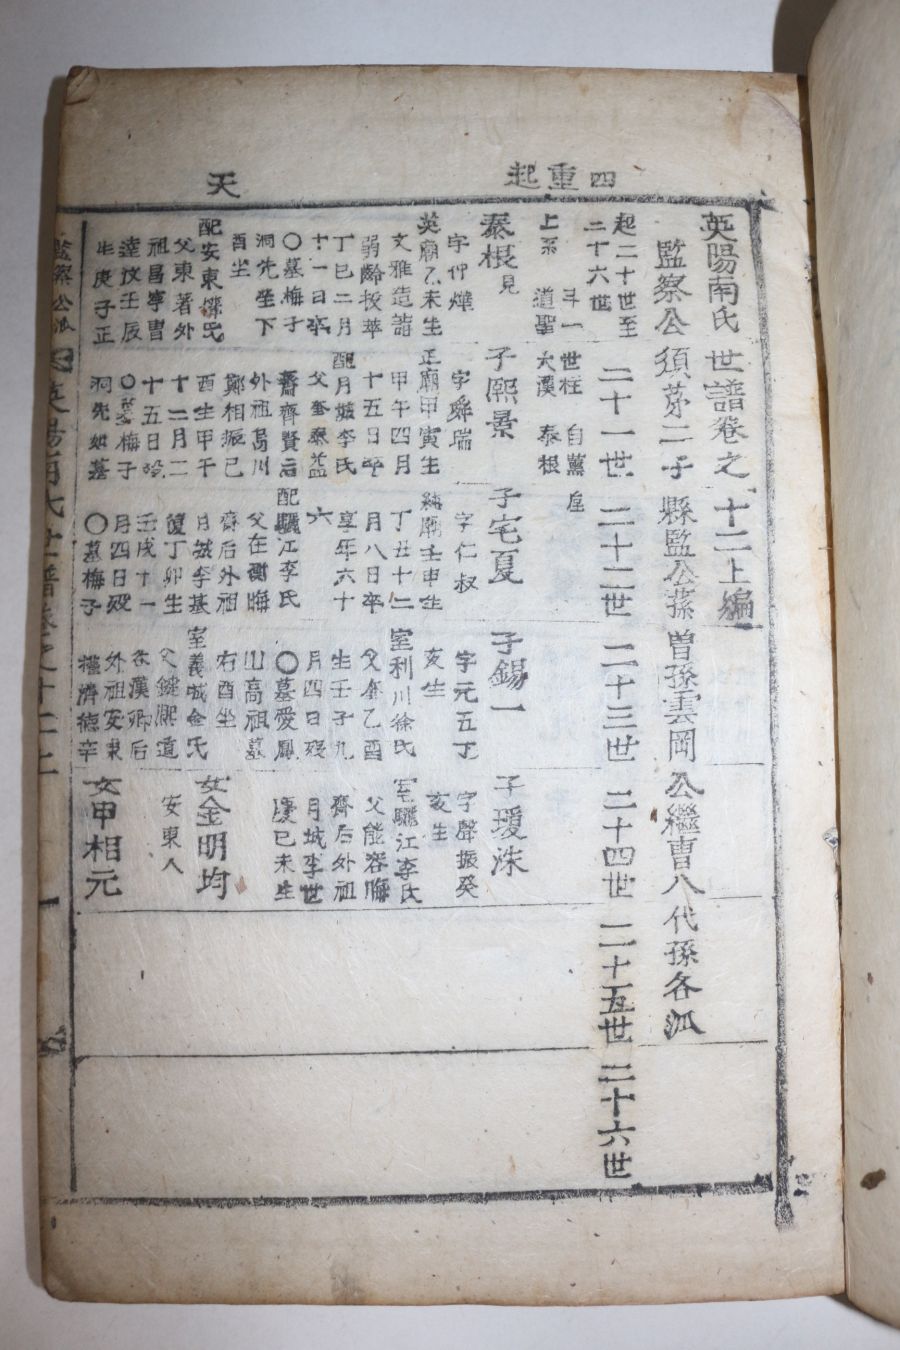 四重起
天
英陽南氏世譜卷之十二上編
監察公須芽二子縣監公蓀曾孫雲岡公繼曹八代孫各派
起二十世至
二十六世
二十一世
二十二世
二十三世
二十四世
二十五世
二十六世
上系
斗一
道聖
世柱
大漢
自薰
泰根
泰根見
字仲燁
英廟乙未生
文雅造詣
弱齡拔萃
丁巳二月
十一日卒
〇墓梅子
洞先塋下
酉坐
配安東權氏
父東著外
祖昌寧曺
逵汶壬辰
生庚子正
子熙景
字舜瑞
正廟甲寅生
甲午四月
十五日卒
配月城李氏
父奎泰益
齋齊賢后
外祖烏川
鄭相振己
酉生甲午
十二月二
十五日歿
〇墓梅子
洞先妣墓
子宅夏
字仁叔
純廟壬申生
丁丑十二
月八日卒
享年六十
六
配驪江李氏
父在衡晦
齋后外祖
月城李基
復丁卯生
壬戌十一
月四日歿
〇墓梅子
子錫一
字元五丁
亥生
室利川徐氏
父 乙酉
生壬子九
月四日歿
〇墓愛鳳
山高祖墓
右酉坐
室義城金氏
父鍵熙進
士漢卿后
外祖安東
權濟德辛
子璦洙
字聲振癸
亥生
室驪江李氏
父能容晦
齋后外祖
月城李世
慶己未生
女金明均
安東人
女甲相元
監察公派
英陽南氏世譜卷之十二上
一